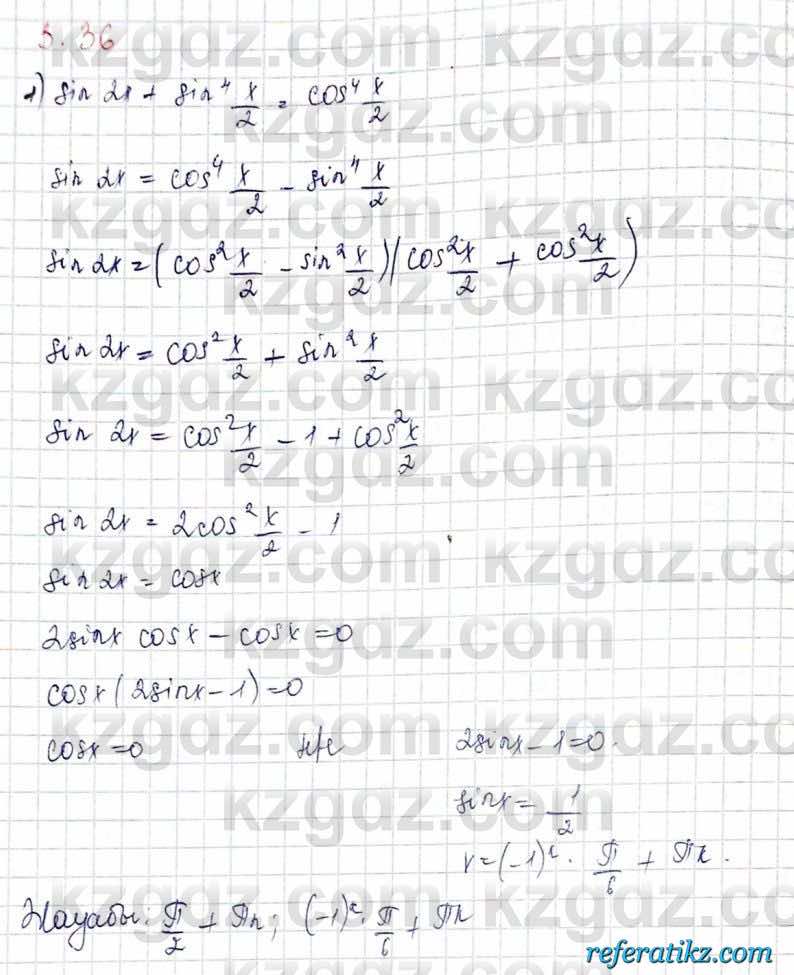 5.36
1) sin 2x + sin⁴ x/2 = cos⁴ x/2
sin 2x = cos⁴ x/2 - sin⁴ x/2
sin 2x = (cos² x/2 - sin² x/2)(cos² x/2 + cos² x/2)
sin 2x = cos² x/2 + sin² x/2
sin 2x = cos² x/2 - 1 + cos² x/2
sin 2x = 2cos² x/2 - 1
sin 2x = cosx
2sinx cosx - cosx = 0
cosx(2sinx - 1) = 0
cosx = 0 н/е 2sinx - 1 = 0.
sinx = 1/2
x = (-1)ᵏ · π/6 + πk.
Жауабы: π/2 + πn; (-1)ᵏ · π/6 + πk
kzgdz.com
referatikz.com